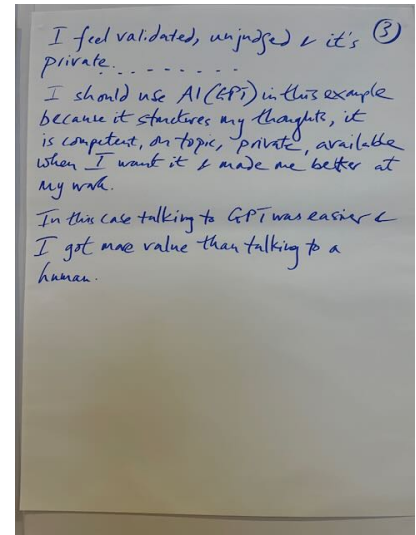 I feel validated, unjudged & it's ③
private. . . . . . . . .
I should use AI (GPT) in this example
because it structures my thoughts, it
is competent, on topic, private, available
when I want it & made me better at
my work.
In this case talking to GPT was easier &
I got more value than talking to a
human.